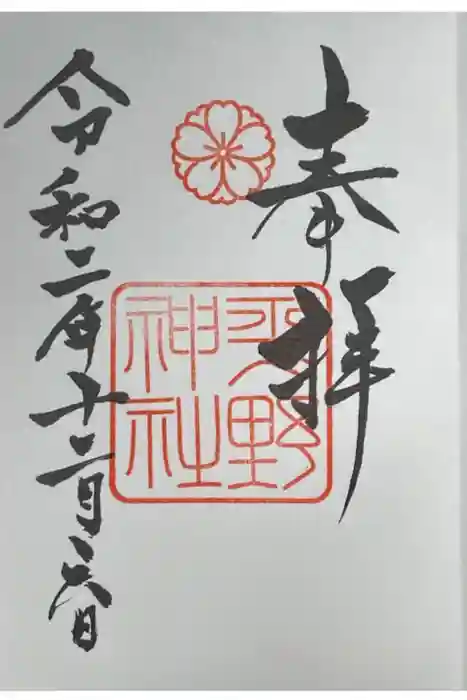 奉拝
平野
神社
令和二年十二月六日